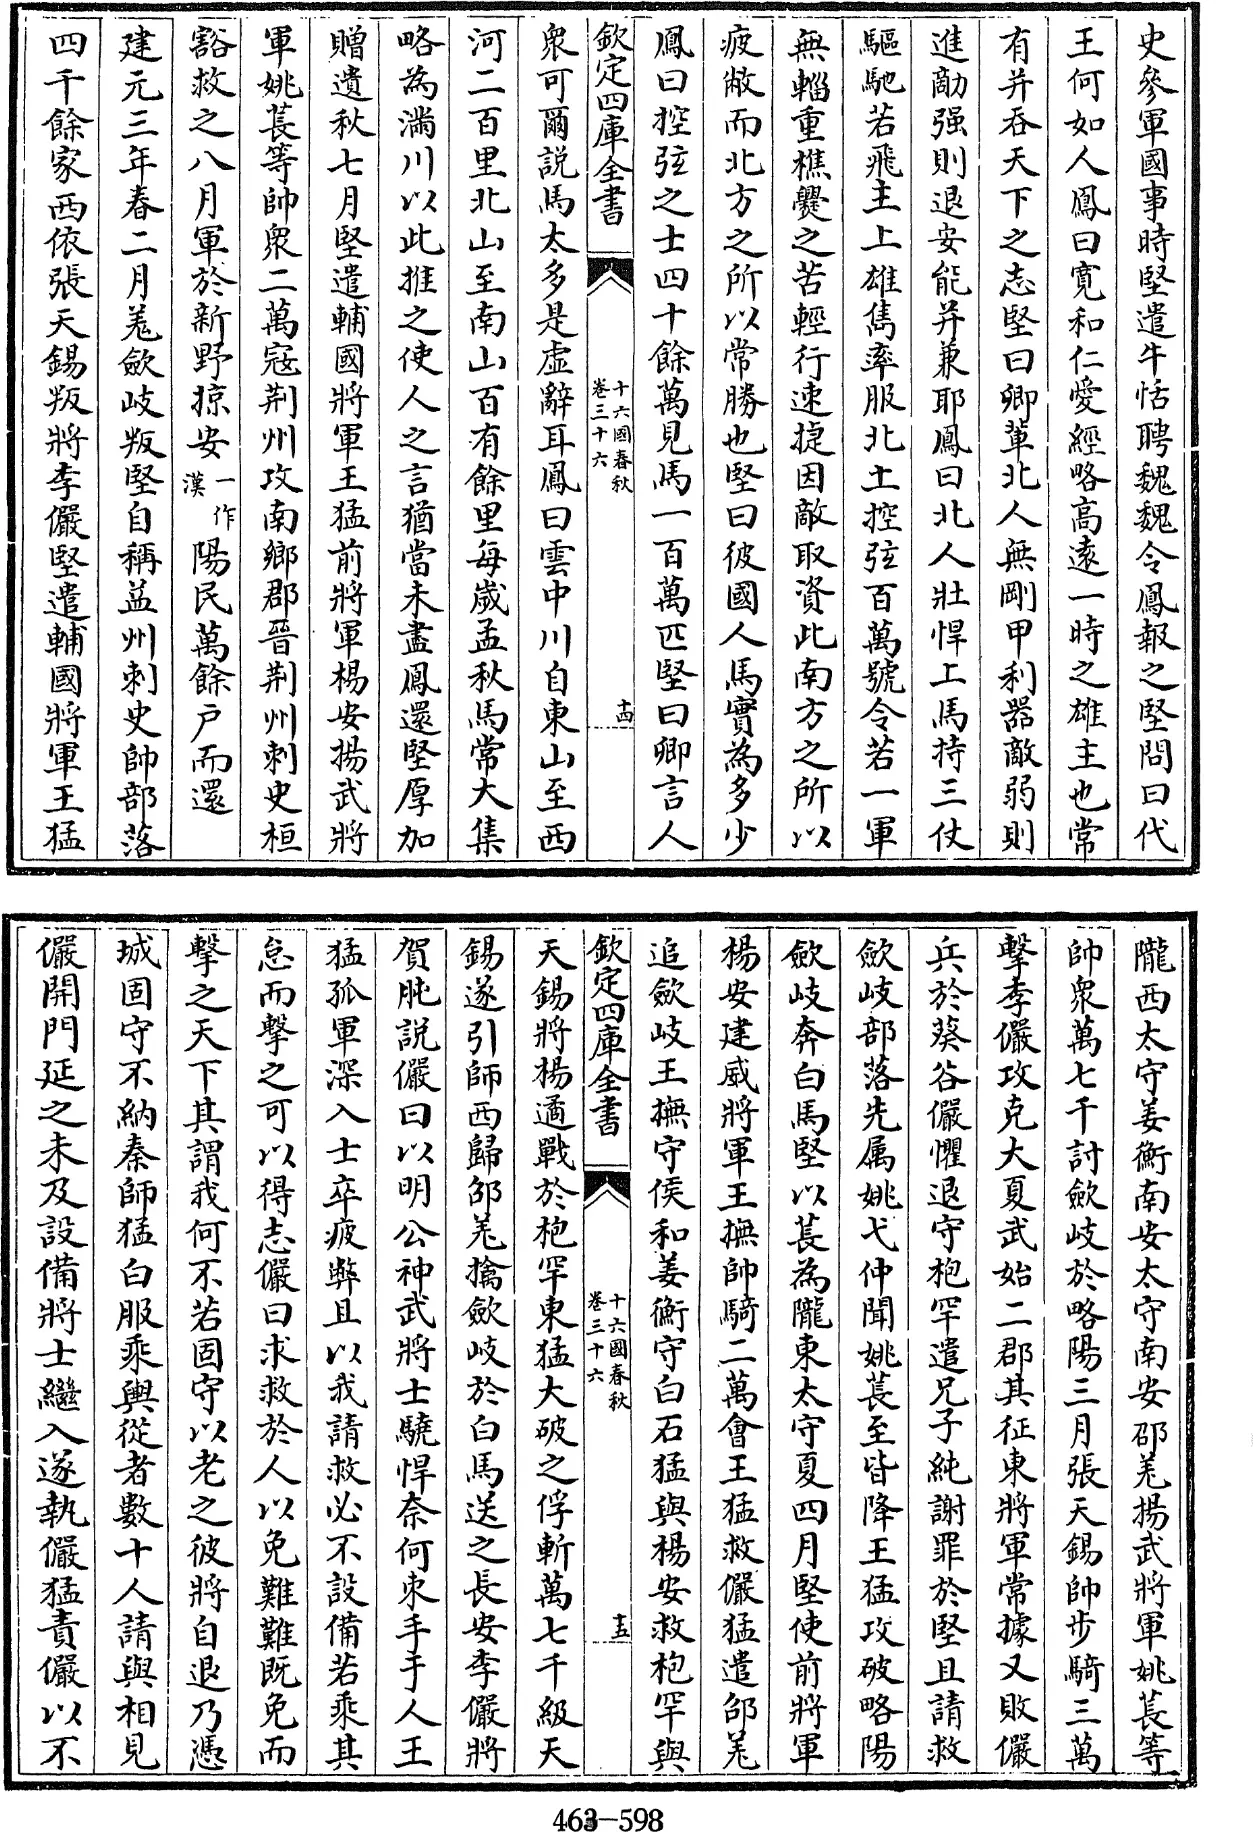 史參軍國事時堅遣牛恬聘魏魏令鳳報之堅問曰代
王何如人鳳曰寬和仁愛經略高遠一時之雄主也常
有并吞天下之志堅曰卿輩北人無剛甲利器敵弱則
進敵强則退安能并兼耶鳳曰北人壯悍上馬持三仗
驅馳若飛主上雄雋率服北土控弦百萬號令若一軍
無輜重樵爨之苦輕行速捷因敵取資此南方之所以
疲敝而北方之所以常勝也堅曰彼國人馬實為多少
鳳曰控弦之士四十餘萬見馬一百萬匹堅曰卿言人
欽定四庫全書
十六國春秋
卷三十六
十四
衆可爾說馬太多是虛辭耳鳳曰雲中川自東山至西
河二百里北山至南山百有餘里每歲孟秋馬常大集
略為滿川以此推之使人之言猶當未盡鳳還堅厚加
贈遺秋七月堅遣輔國將軍王猛前將軍楊安揚武將
軍姚萇等帥衆二萬寇荆州攻南鄉郡晉荆州刺史桓
豁救之八月軍於新野掠安一作漢陽民萬餘户而還
建元三年春二月羌歛岐叛堅自稱益州刺史帥部落
四千餘家西依張天錫叛將李儼堅遣輔國將軍王猛
隴西太守姜衡南安太守南安邵羌揚武將軍姚萇等
帥衆萬七千討歛岐於略陽三月張天錫帥步騎三萬
擊李儼攻克大夏武始二郡其征東將軍常據又敗儼
兵於葵谷儼懼退守枹罕遣兄子純謝罪於堅且請救
歛岐部落先属姚弋仲聞姚萇至皆降王猛攻破略陽
歛岐奔白馬堅以萇為隴東太守夏四月堅使前將軍
楊安建威將軍王撫帥騎二萬會王猛救儼猛遣邵羌
追歛岐王撫守侯和姜衡守白石猛與楊安救枹罕與
欽定四庫全書
十六國春秋
卷三十六
十五
天錫將楊遹戰於枹罕東猛大破之俘斬萬七千級天
錫遂引師西歸邵羌擒歛岐於白馬送之長安李儼將
賀肫說儼曰以明公神武將士驍悍奈何束手于人王
猛孤軍深入士卒疲弊且以我請救必不設備若乘其
怠而擊之可以得志儼曰求救於人以免難難既免而
擊之天下其謂我何不若固守以老之彼將自退乃憑
城固守不納秦師猛白服乘輿從者數十人請與相見
儼開門延之未及設備將士繼入遂執儼猛責儼以不
463-598